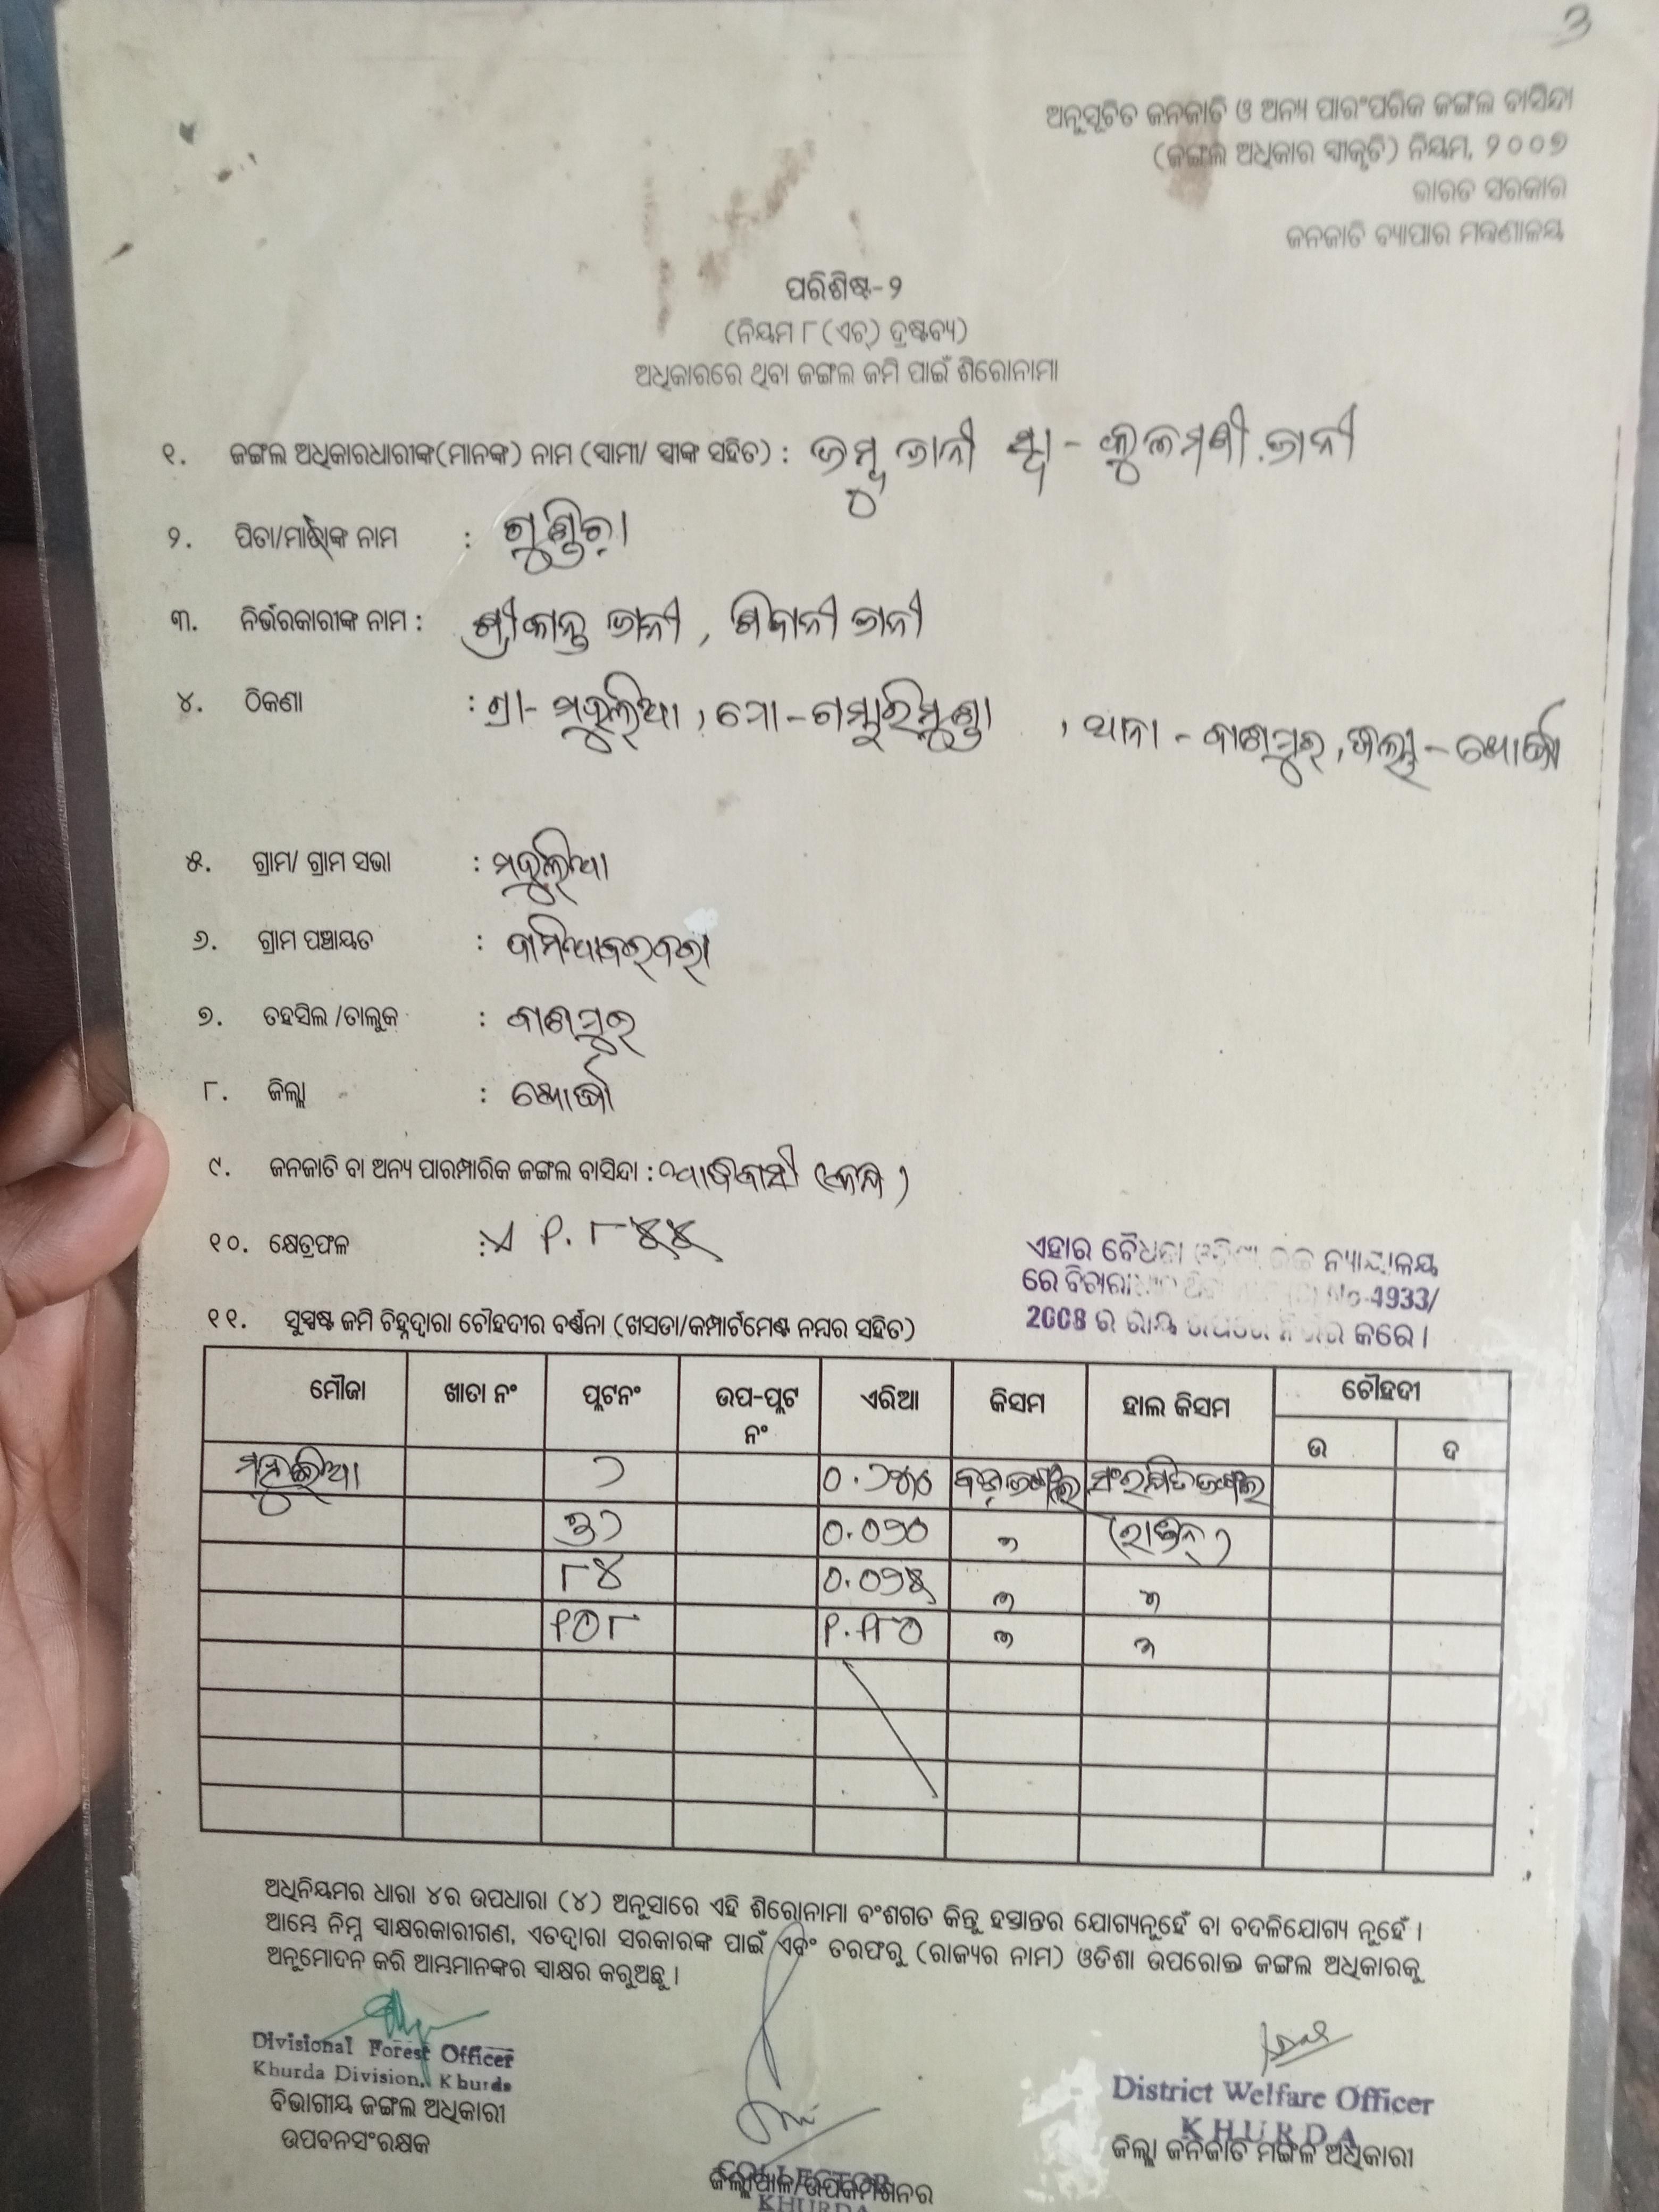 ୩
ଅନୁସୂଚିତ ଜନଜାତି ଓ ଅନ୍ୟ ପାରଂପରିକ ଜଙ୍ଗଲ ବାସିନ୍ଦା
(ଜଙ୍ଗଲ ଅଧିକାର ସ୍ୱୀକୃତି) ନିୟମ, ୨୦୦୭
ଭାରତ ସରକାର
ଜନଜାତି ବ୍ୟାପାର ମନ୍ତ୍ରଣାଳୟ
ପରିଶିଷ୍ଟ-୨
(ନିୟମ ୮(ଏଚ୍) ଦ୍ରଷ୍ଟବ୍ୟ)
ଅଧିକାରରେ ଥିବା ଜଙ୍ଗଲ ଜମି ପାଇଁ ଶିରୋନାମା
୧. ଜଙ୍ଗଲ ଅଧିକାରଧାରୀଙ୍କ(ମାନଙ୍କ) ନାମ (ସ୍ୱାମୀ/ ସ୍ତ୍ରୀଙ୍କ ସହିତ) : ଜମ୍ବୁ ଜାନୀ ସ୍ୱା - କୁଳମଣୀ ଜାନୀ
୨. ପିତା/ମାତାଙ୍କ ନାମ : ଗୁଣ୍ଡିଚା
୩. ନିର୍ଭରକାରୀଙ୍କ ନାମ : ଶ୍ରୀକାନ୍ତ ଜାନୀ, ଶିବାନୀ ଜାନୀ
୪. ଠିକଣା : ଗ୍ରା- ମହୁଲିଆ, ପୋ-ଗମ୍ଭାରିମୁଣ୍ଡା, ଥାନା - ବାଣପୁର, ଜିଲ୍ଲା - ଖୋର୍ଦ୍ଧା
୫. ଗ୍ରାମ/ ଗ୍ରାମ ସଭା : ମହୁଲିଆ
୬. ଗ୍ରାମ ପଞ୍ଚାୟତ :
୭. ତହସିଲ /ତାଲୁକ : ବାଣପୁର
୮. ଜିଲ୍ଲା : ଖୋର୍ଦ୍ଧା
୯. ଜନଜାତି ବା ଅନ୍ୟ ପାରମ୍ପାରିକ ଜଙ୍ଗଲ ବାସିନ୍ଦା : ଆଦିବାସୀ (କନ୍ଧ)
୧୦. କ୍ଷେତ୍ରଫଳ : ଏ ୧.୮୫୫
ଏହାର ବୈଧତା ଓଡ଼ିଶା ଉଚ୍ଚ ନ୍ୟାୟାଳୟ
ରେ ବିଚାରାଧୀନ No-4933/
2008 ର ରାୟ ଉପରେ ନିର୍ଭର କରେ।
୧୧. ସୁସ୍ପଷ୍ଟ ଜମି ଚିହ୍ନଦ୍ୱାରା ଚୌହଦୀର ବର୍ଣ୍ଣନା (ଖସଡା/କମ୍ପାର୍ଟମେଣ୍ଟ ନମ୍ବର ସହିତ)
ମୌଜା ଖାତା ନଂ ପ୍ଲଟନଂ ଉପ-ପ୍ଲଟ ନଂ ଏରିଆ କିସମ ହାଲ କିସମ ଚୌହଦୀ
ଉ ଦ
ମହୁଲିଆ ୨ ବଡ଼ଜଙ୍ଗଲ ସଂରକ୍ଷିତ ଜଙ୍ଗଲ
୩୨ ୦.୦୨୦ "
୮୪ ୦.୦୨୫ " "
୧୦୮ " "
ଅଧିନିୟମର ଧାରା ୪ର ଉପଧାରା (୪) ଅନୁସାରେ ଏହି ଶିରୋନାମା ବଂଶଗତ କିନ୍ତୁ ହସ୍ତାନ୍ତର ଯୋଗ୍ୟନୁହେଁ ବା ବଦଳିଯୋଗ୍ୟ ନୁହେଁ ।
ଆମ୍ଭେ ନିମ୍ନ ସ୍ୱାକ୍ଷରକାରୀଗଣ, ଏତଦ୍ୱାରା ସରକାରଙ୍କ ପାଇଁ ଏବଂ ତରଫରୁ (ରାଜ୍ୟର ନାମ) ଓଡିଶା ଉପରୋକ୍ତ ଜଙ୍ଗଲ ଅଧିକାରକୁ
ଅନୁମୋଦନ କରି ଆମ୍ଭମାନଙ୍କର ସ୍ୱାକ୍ଷର କରୁଅଛୁ ।
Divisional Forest Officer
Khurda Division, Khurda
ବିଭାଗୀୟ ଜଙ୍ଗଲ ଅଧିକାରୀ
ଉପବନସଂରକ୍ଷକ
COLLECTOR
ଜିଲ୍ଲାପାଳ/ଉପକମିଶନର
KHURDA
District Welfare Officer
KHURDA
ଜିଲ୍ଲା ଜନଜାତି ମଙ୍ଗଳ ଅଧିକାରୀ